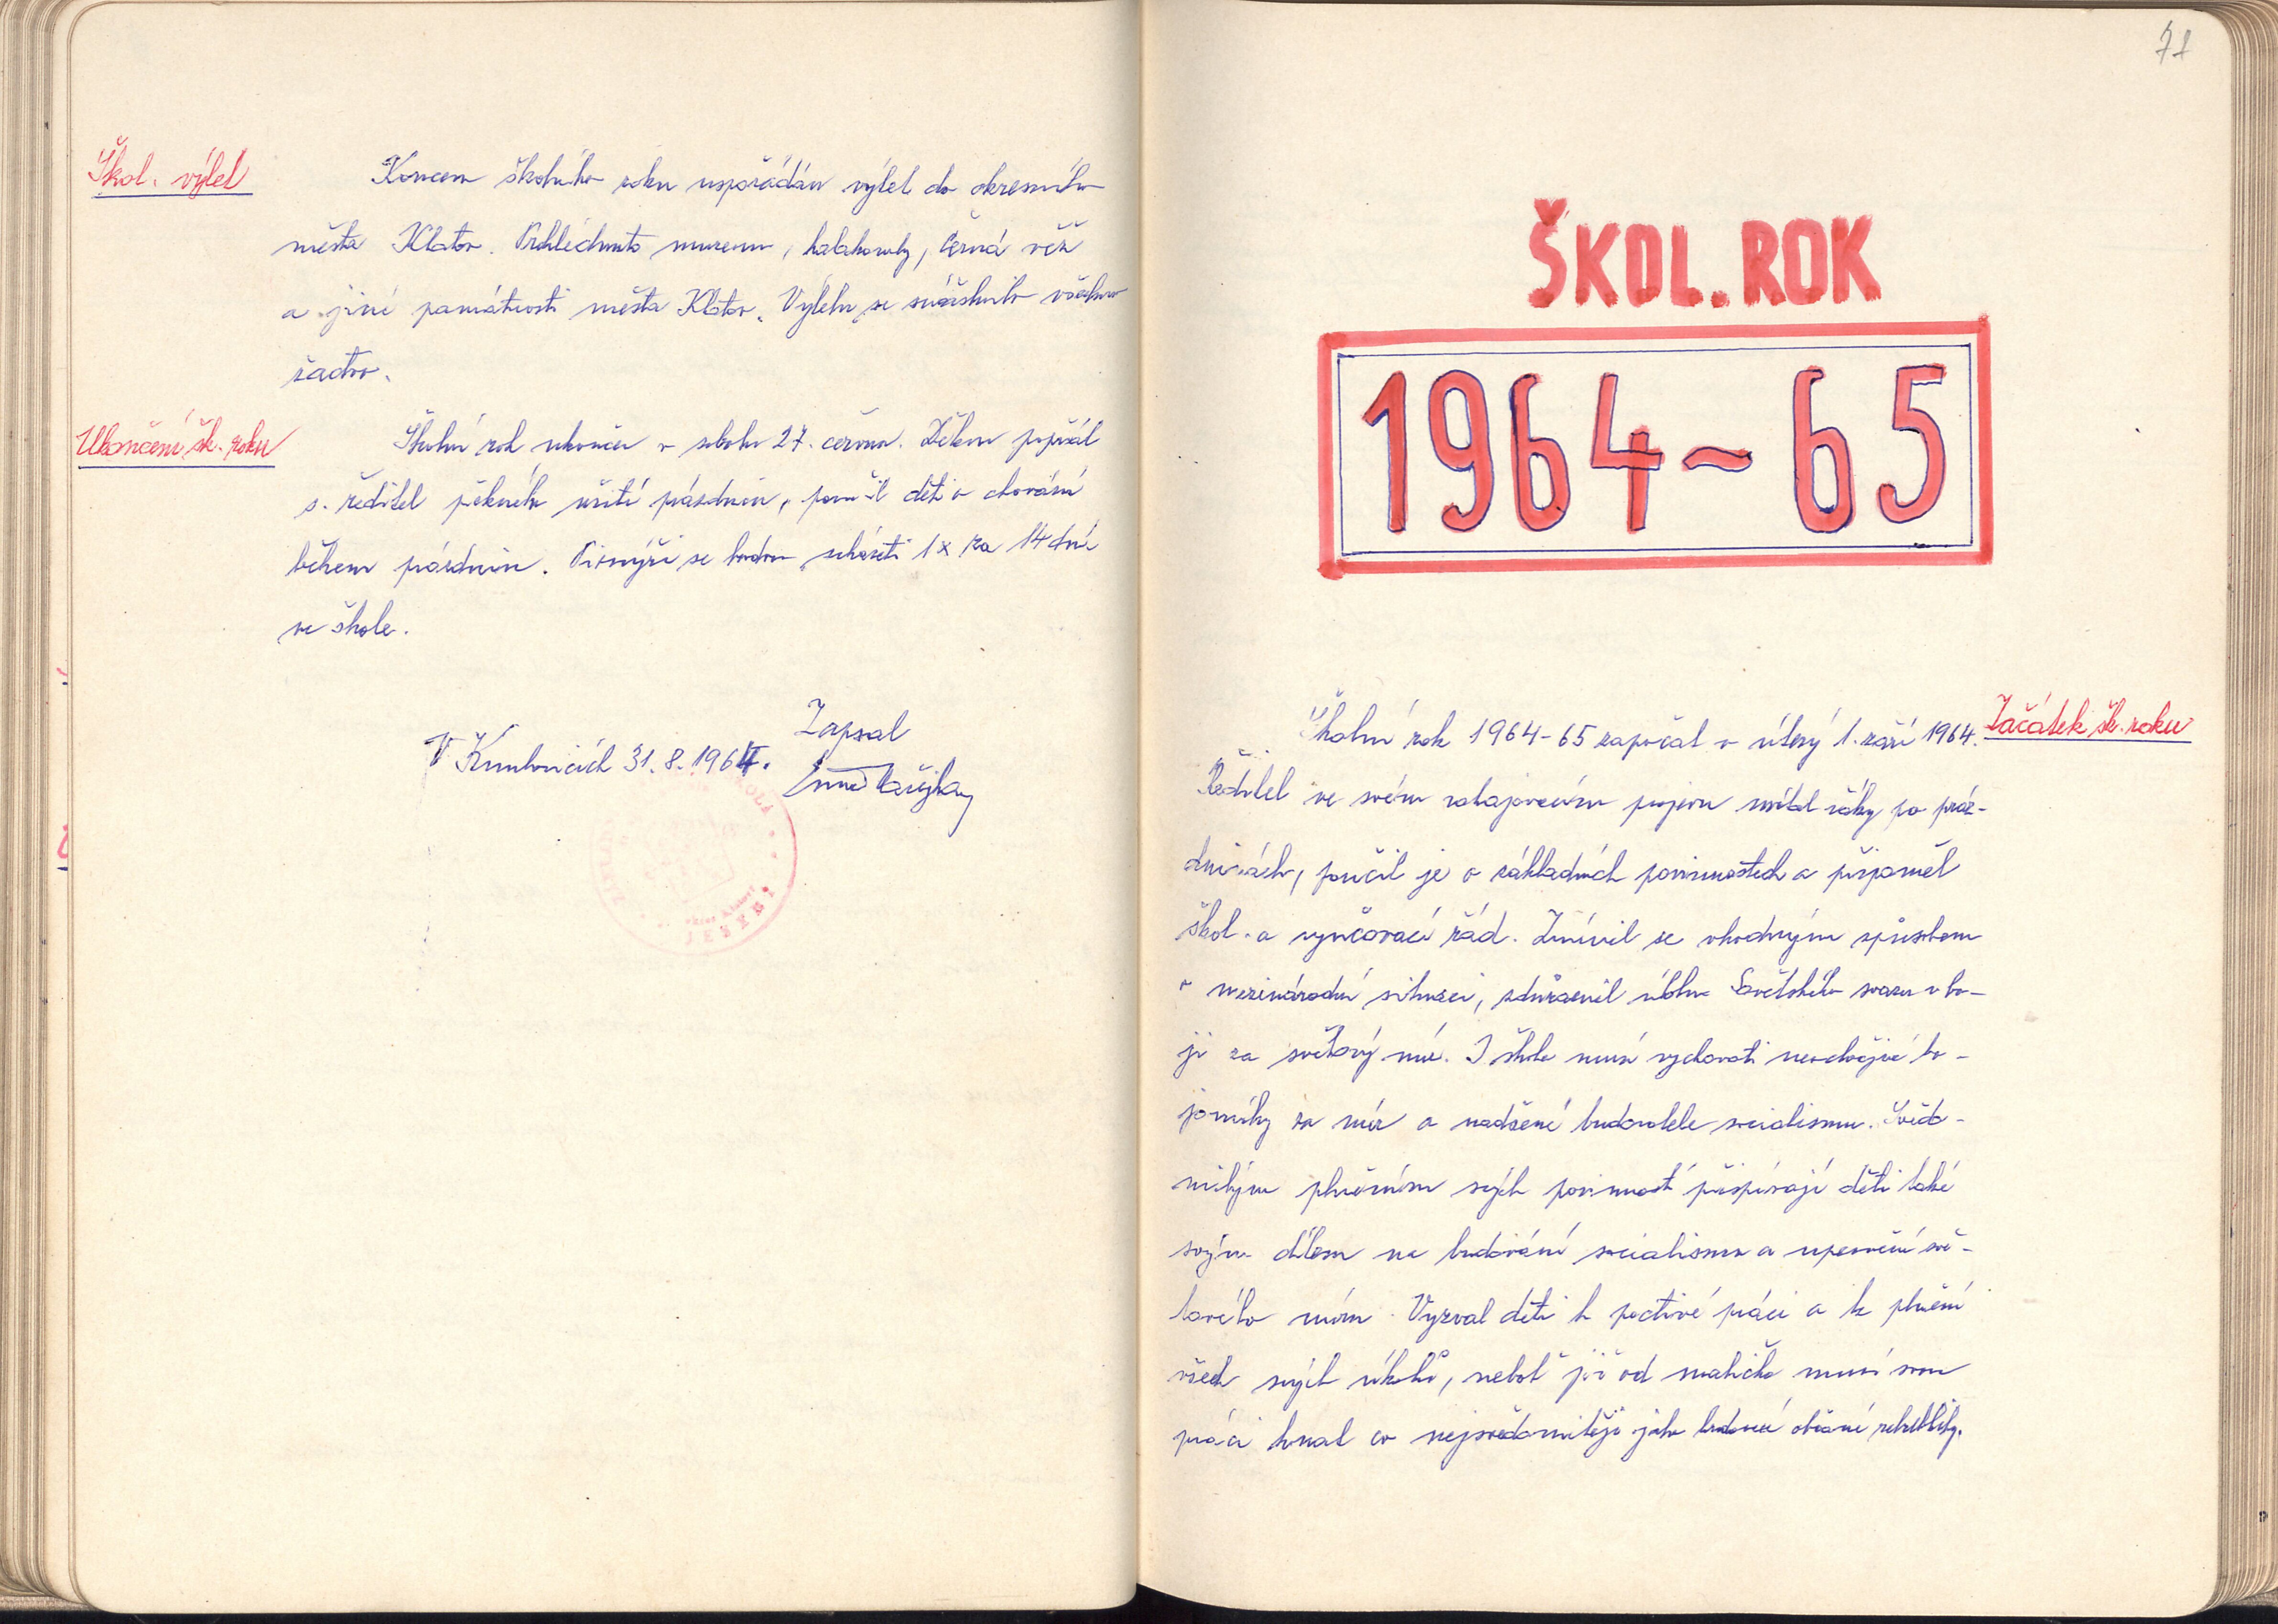 Škol. výlet
Koncem školního roku uspořádán výlet do okresního
města Klatov. Prohlédnuto museum, katakomby, Černá věž
a jiné památnosti města Klatov. Výletu se súčastnilo všechno
žactvo.
Ukončení šk. roku
Školní rok ukončen v sobotu 27. června. Dětem popřál
s. ředitel pěkného užití prázdnin, poučil děti o chování
během prázdnin. Pionýři se budou scházeti 1x za 14 dní
ve škole.
Zapsal
V 31. 8. 1964.
JESENÍ
71
ŠKOL. ROK
1964-65
Začátek šk. roku
Školní rok 1964-65 započal v úterý 1. září 1964.
Ředitel ve svém zahajovacím projevu uvítal žáky po práz-
dninách, poučil je o základních povinnostech a připoměl
škol. a vyučovací řád. Zmínil se vhodným způsobem
o mezinárodní situaci, zdůraznil úlohu Sovětského svazu v bo-
ji za světový mír. I škola musí vychovati neochvějné bo-
jovníky za mír a nadšené budovatele socialismu. Svědo-
mitým plněním svých povinností přispívají děti také
svým dílem na budování socialismu a upevnění svě-
tového míru. Vyzval děti k poctivé práci a k plnění
všech svých úkolů, neboť již od malička musí svou
práci konat co nejsvědomitěji jako budoucí občané republiky.